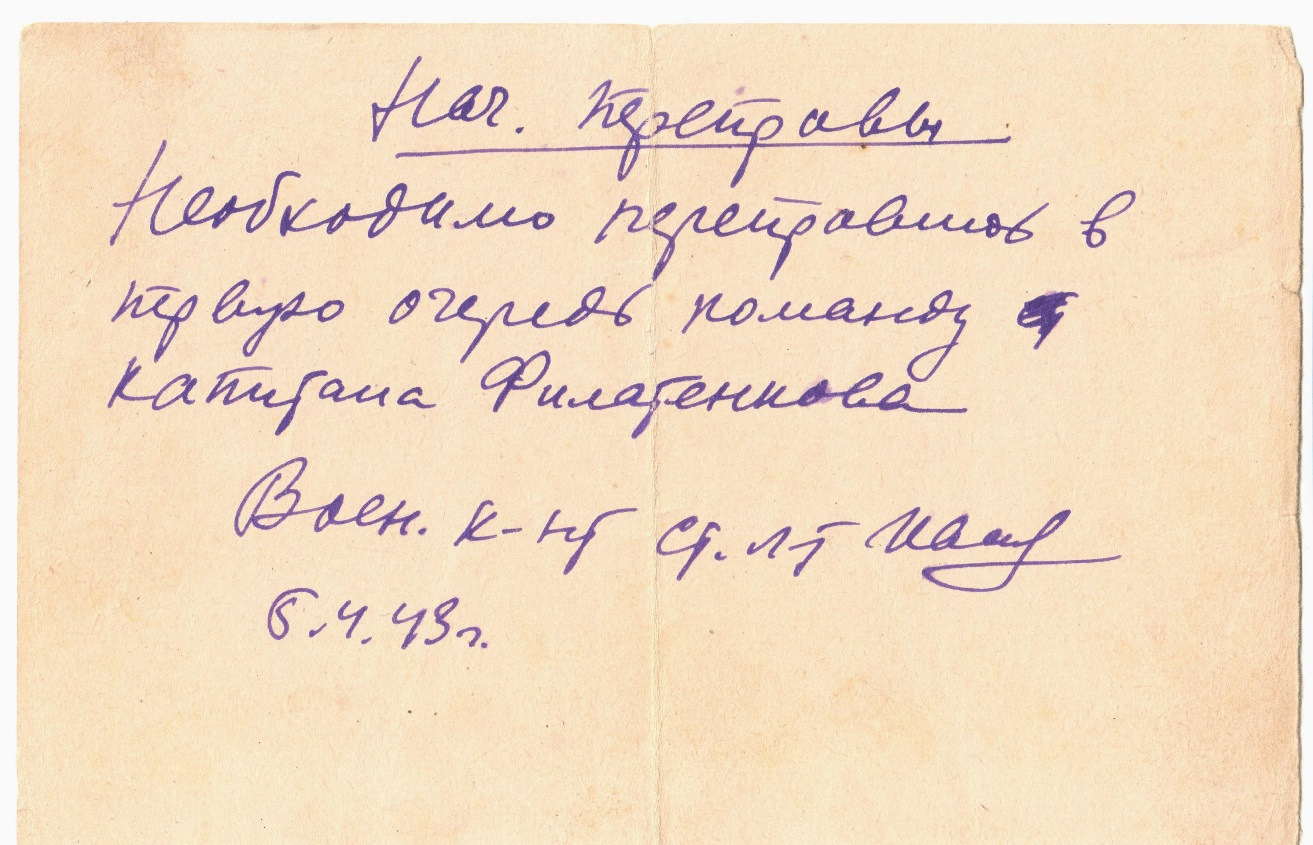 Нач. переправы
Необходимо переправить в
первую очередь команду
капитана Филатенкова
Воен. к-нт ст. лт
5.4.43г.